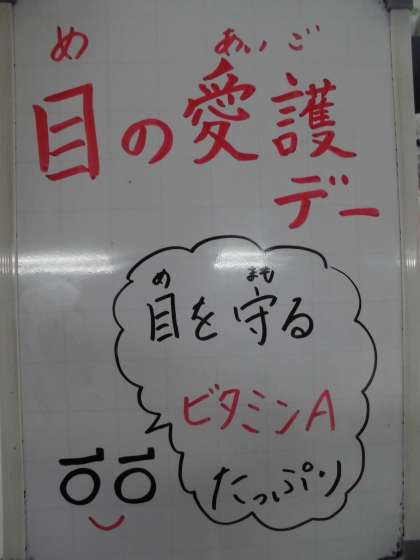 め あいご
目の愛護
デー
め まも
目を守る
ビタミンA
たっぷり
10 10